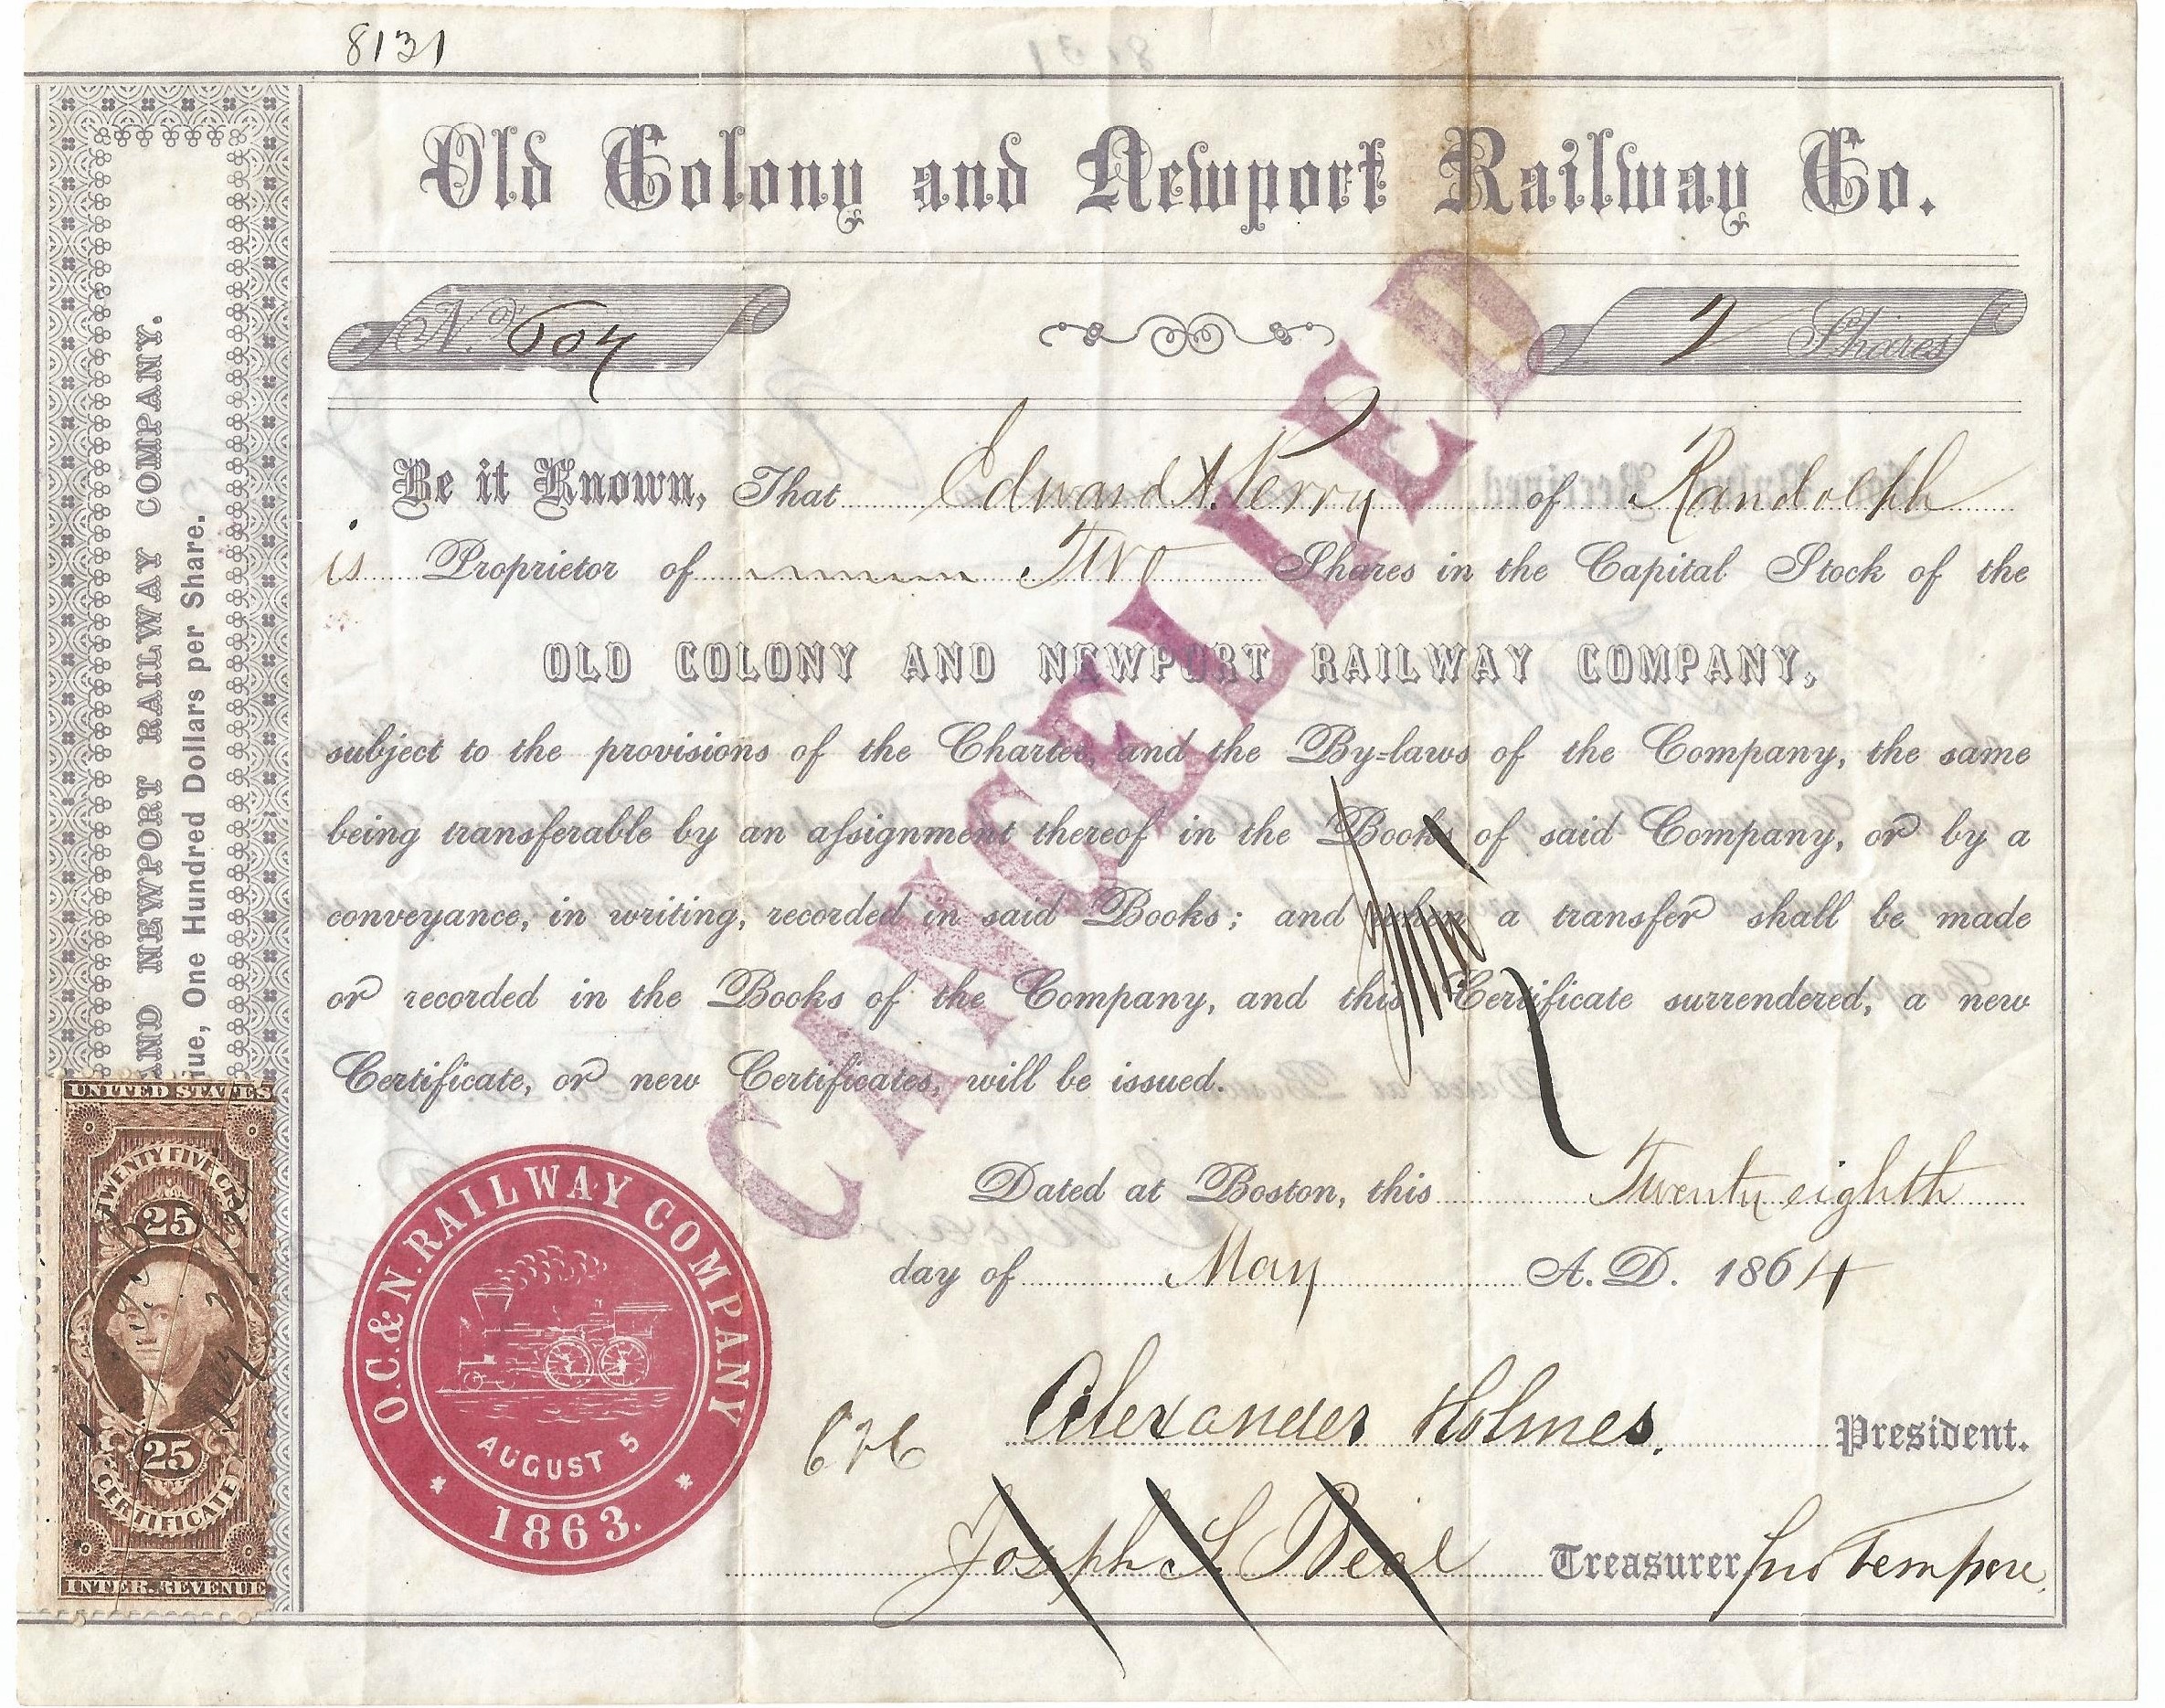 8131
Old Colony and Newport Railway Co.
No. 607
2 Shares
Be it Known, That Edward A. Perry of Randolph
is Proprietor of Two Shares in the Capital Stock of the
OLD COLONY AND NEWPORT RAILWAY COMPANY,
subject to the provisions of the Charter, and the By-laws of the Company, the same
being transferable by an assignment thereof in the Books of said Company, or by a
conveyance, in writing, recorded in said Books; and when a transfer shall be made
or recorded in the Books of the Company, and this Certificate surrendered, a new
Certificate, or new Certificates, will be issued.
CANCELLED
Dated at Boston, this Twenty eighth
day of May A. D. 1864
Alexander Holmes. President.
Joseph S. Beal Treasurer pro Tempore.
O.C. & N. RAILWAY COMPANY
AUGUST 5
* 1863. *
AND NEWPORT RAILWAY COMPANY.
One Hundred Dollars per Share.
UNITED STATES
TWENTY FIVE CTS
25
25
CERTIFICATE
INTER. REVENUE